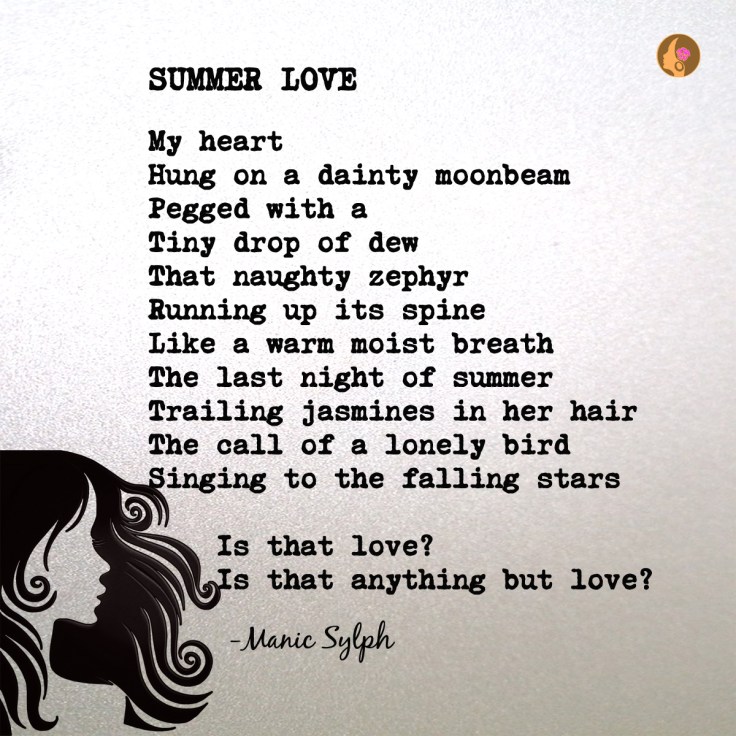 SUMMER LOVE
My heart
Hung on a dainty moonbeam
Pegged with a
Tiny drop of dew
That naughty zephyr
Running up its spine
Like a warm moist breath
The last night of summer
Trailing jasmines in her hair
The call of a lonely bird
Singing to the falling stars
Is that love?
Is that anything but love?
-Manic Sylph